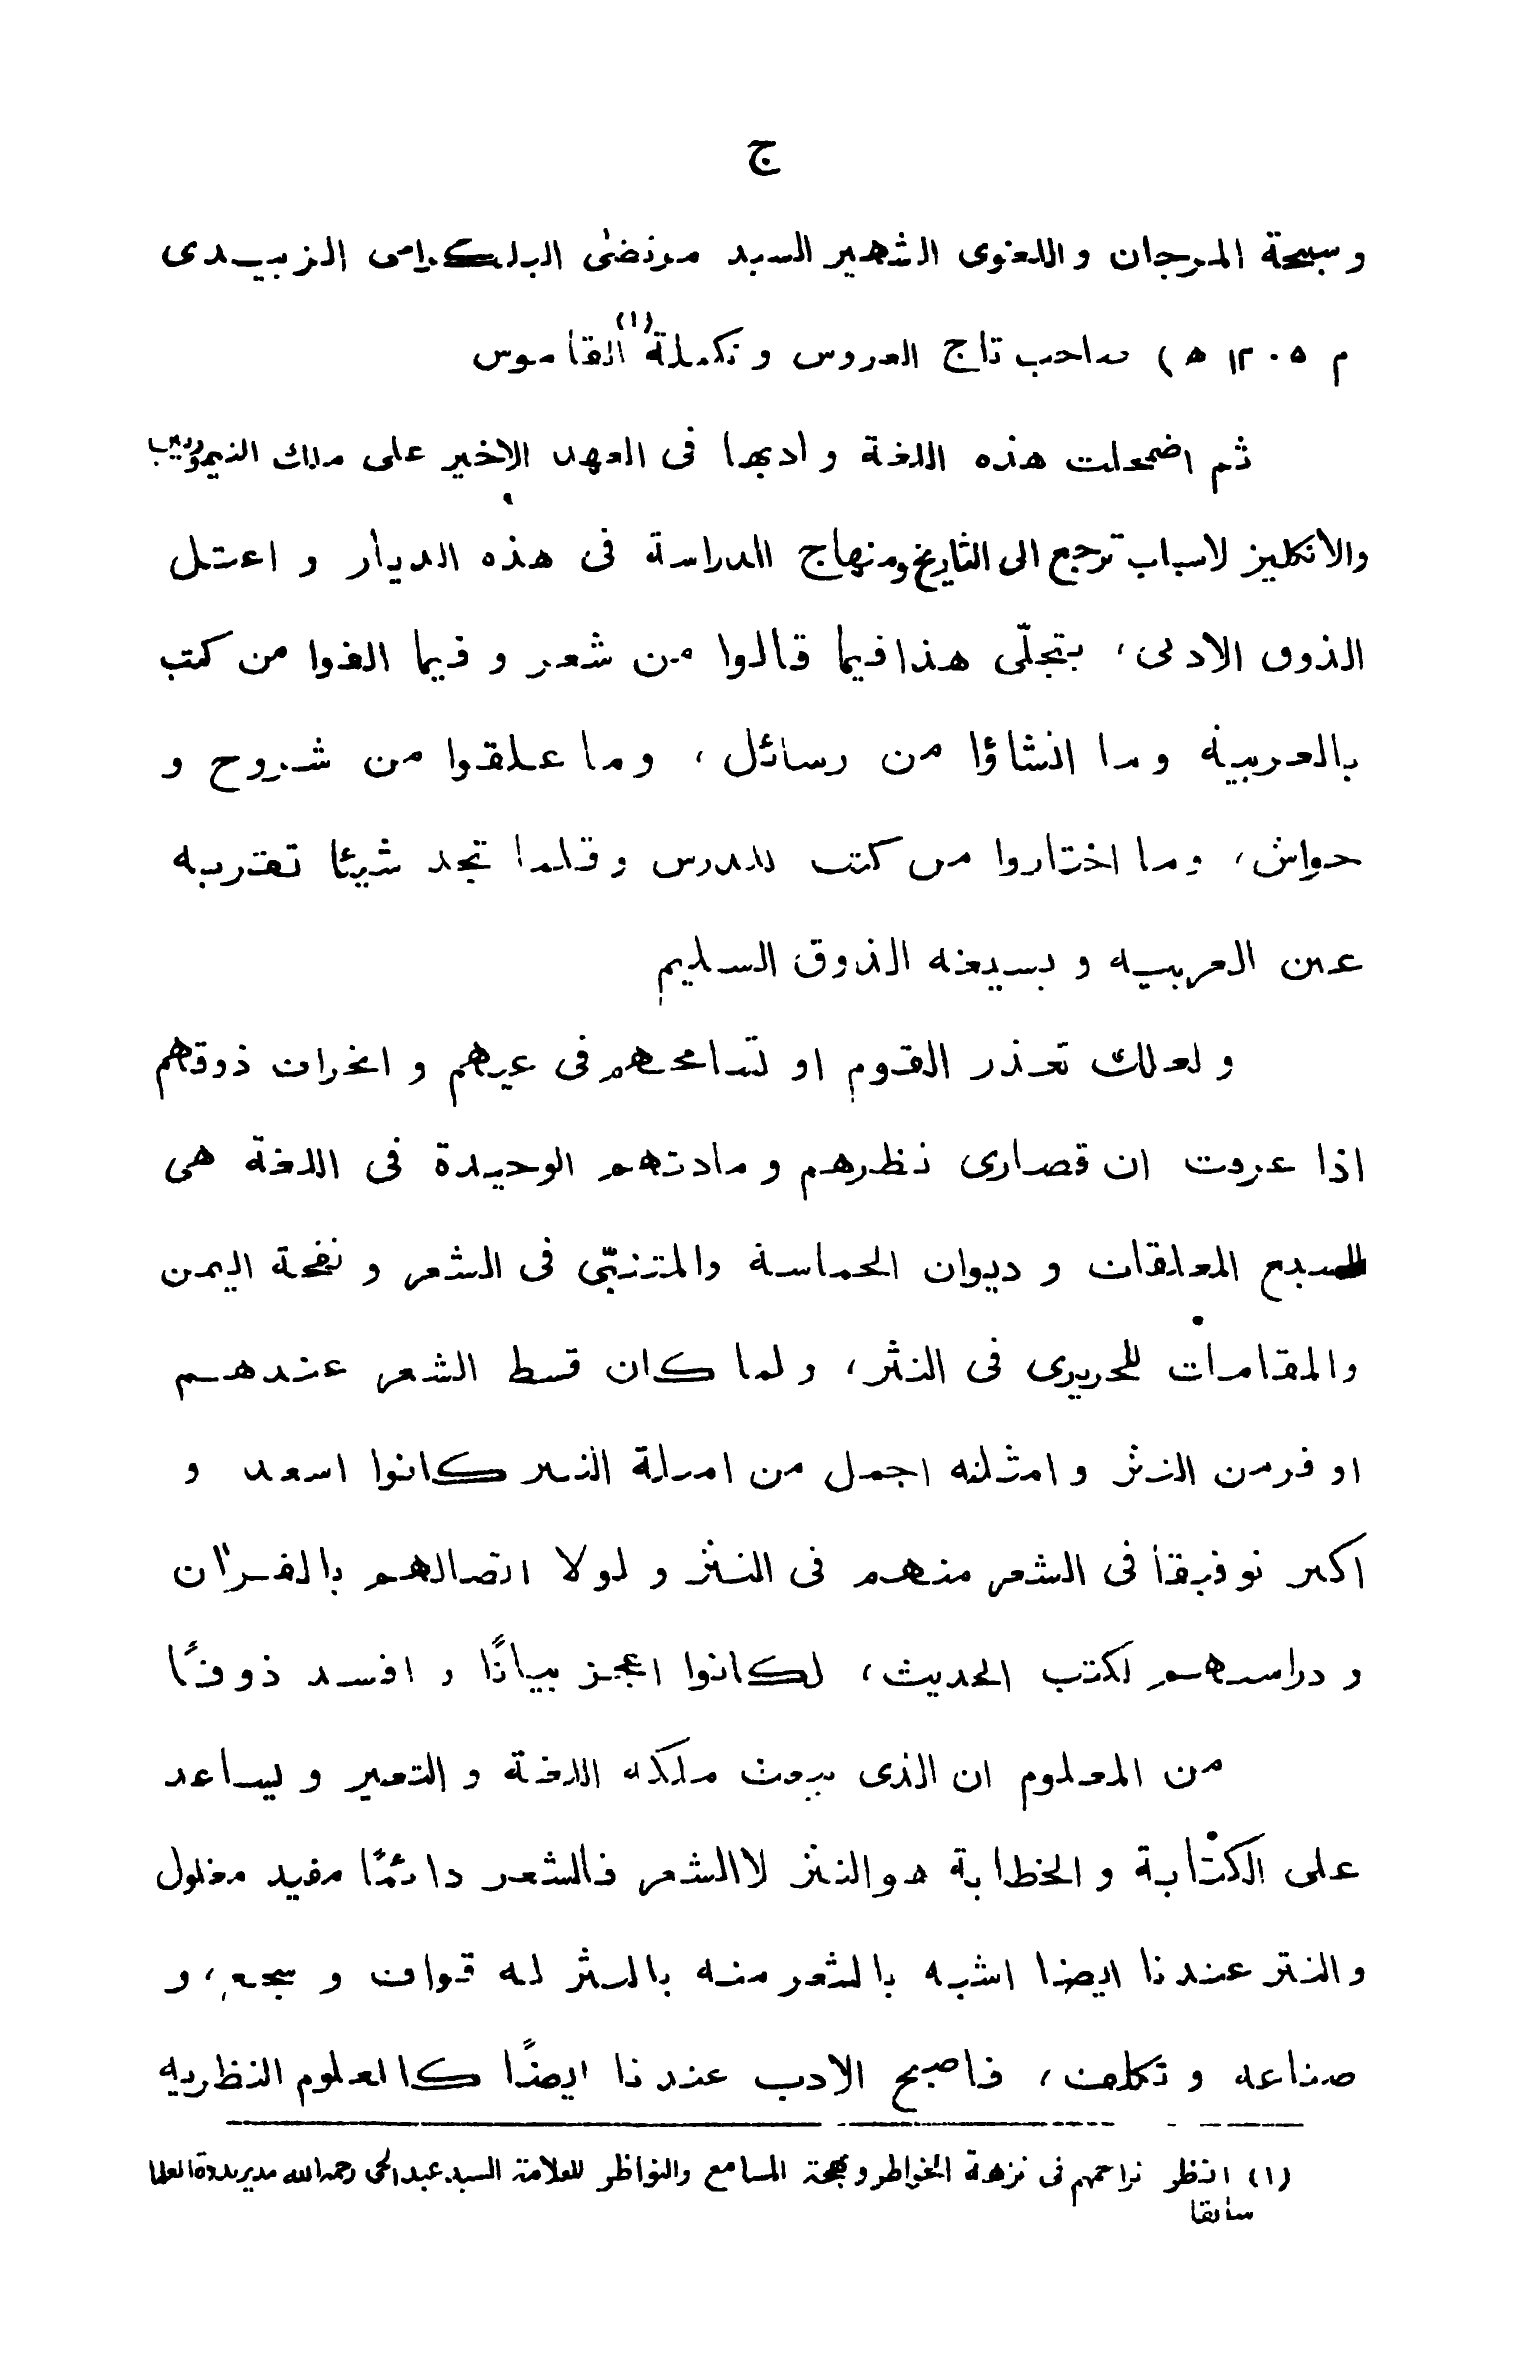 ج
و سبحة المرجان و اللغوى الشهير السيد مرتضى البلكرامى الزبيدى
م ١٢٠٥ ھ ) صاحب تاج العروس و تكملة القاموس (١)
ثم اضمحلت هذه اللغة و ادبها فى العهد الاخير على ملك التيموريين
والانكليز لاسباب ترجع الى التاريخ ومنهاج الدراسة فى هذه الديار و اعتل
الذوق الادبى، يتجلّى هذا فيما قالوا من شعر و فيما الفوا من كتب
بالعربية و ما انشاؤا من رسائل، و ما علقوا من شروح و
حواش، و ما اختاروا من كتب للدرس و قلما تجد شيئا تقر به
عين العربية و يسيغه الذوق السليم
و لعلك تعذر القوم او تسامحهم فى عيهم و انحراف ذوقهم
اذا عرفت ان قصارى نظرهم و مادتهم الوحيدة فى اللغة هى
السبع المعلقات و ديوان الحماسة والمتنبّى فى الشعر و نفحة اليمن
والمقامات للحريرى فى النثر، و لما كان قسط الشعر عندهم
او فر من النثر و امثلته اجمل من امثلة النثر كانوا اسعد و
اكبر توفيقا فى الشعر منهم فى النثر و لولا اتصالهم بالقرآن
و دراستهم لكتب الحديث، لكانوا اعجز بيانًا و افسد ذوقًا
من المعلوم ان الذى يبعث ملكة اللغة و التعبير و يساعد
على الكتابة و الخطابة هو النثر لا الشعر فالشعر دائمًا مقيد مغلول
و النثر عندنا ايضا اشبه بالشعر منه بالنثر له قواف و سجع، و
صناعة و تكلف، فاصبح الادب عندنا ايضًا كالعلوم النظرية
(١) انظر تراجمهم فى نزهة الخواطر و بهجة المسامع والنواظر للعلامة السيد عبد الحى رحمه الله مدير ندوة العلما
سابقا